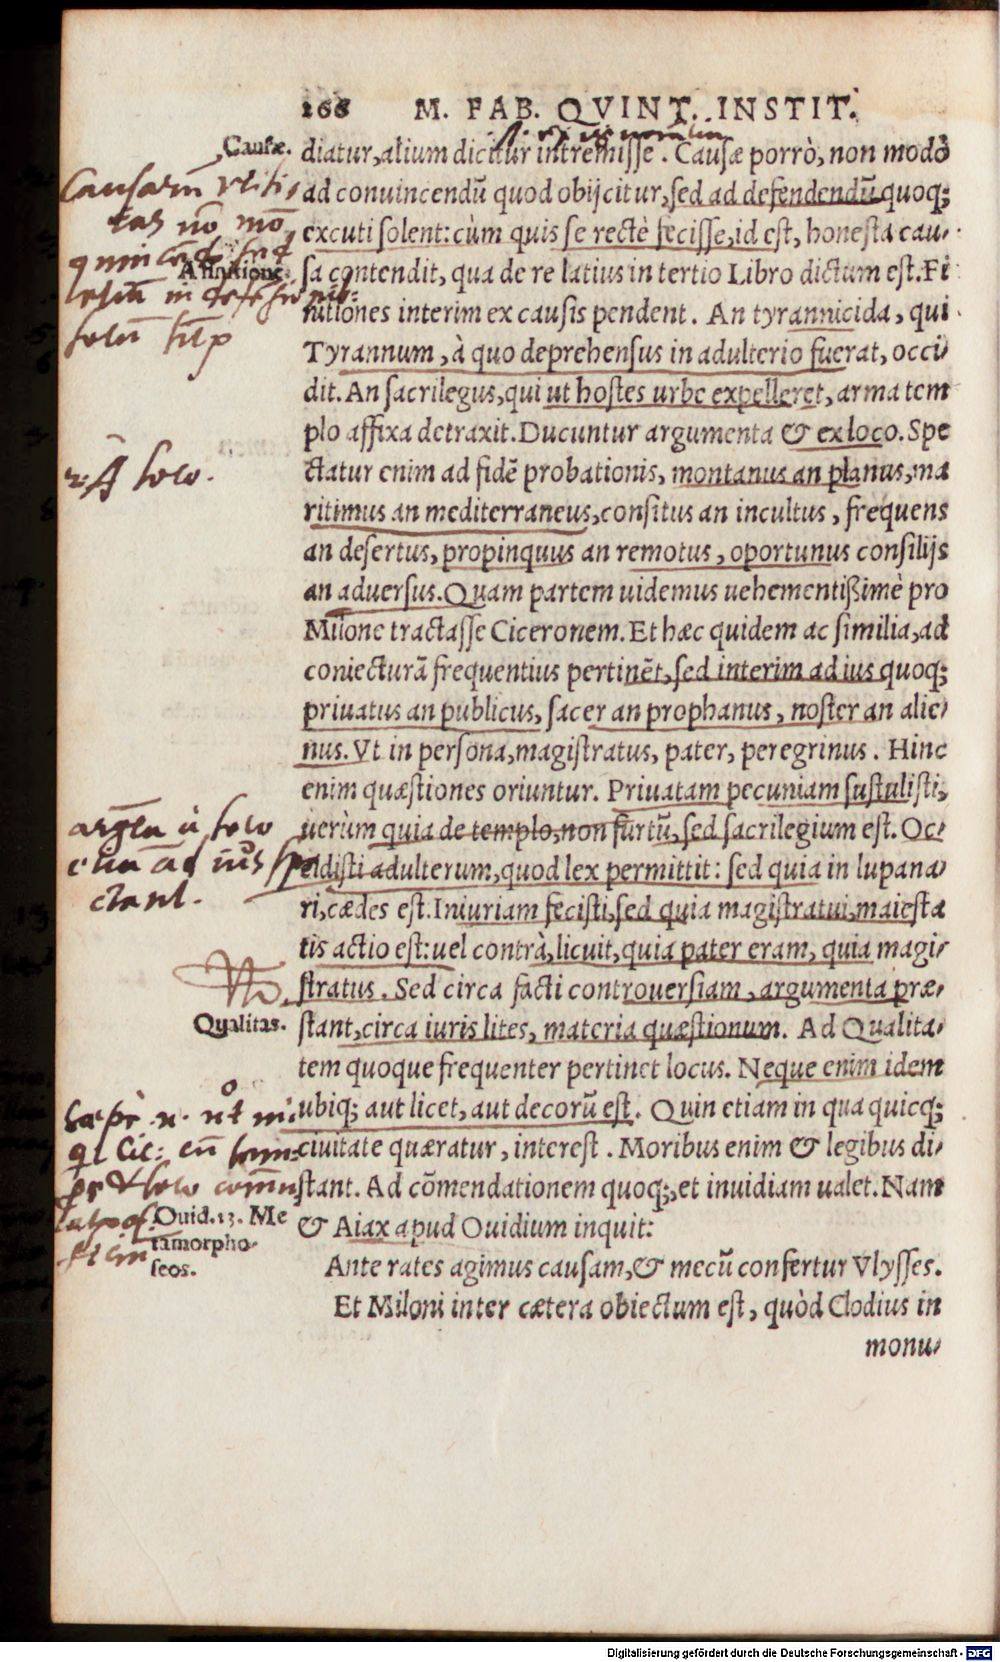 266 M. FAB. QVINT. INSTIT.
Causæ.
diatur, alium dicitur intremisse. Causæ porrò, non modò
ad conuincendũ quod obijcitur, sed ad defendendũ quoq;
excuti solent: cùm quis se rectè fecisse, id est, honesta cau-
sa contendit, qua de re latius in tertio Libro dictum est. Fi
nitiones interim ex causis pendent. An tyrannicida, qui
Tyrannum, à quo deprehensus in adulterio fuerat, occi-
dit. An sacrilegus, qui ut hostes urbe expelleret, arma tem
plo affixa detraxit. Ducuntur argumenta & ex loco. Spe
ctatur enim ad fidẽ probationis, montanus an planus, ma
ritimus an mediterraneus, consitus an incultus, frequens
an desertus, propinquus an remotus, oportunus consilijs
an aduersus. Quam partem uidemus uehementißimè pro
Milone tractasse Ciceronem. Et hæc quidem ac similia, ad
coniecturã frequentius pertinẽt, sed interim ad ius quoq;
priuatus an publicus, sacer an prophanus, noster an alie-
nus. Vt in persona, magistratus, pater, peregrinus. Hinc
enim quæstiones oriuntur. Priuatam pecuniam sustulisti,
uerùm quia de templo, non furtũ, sed sacrilegium est. Oc-
cidisti adulterum, quod lex permittit: sed quia in lupana-
ri, cædes est. Iniuriam fecisti, sed quia magistratui, maiesta
tis actio est: uel contrà, licuit, quia pater eram, quia magi-
stratus. Sed circa facti controuersiam, argumenta præ-
Qualitas.
stant, circa iuris lites, materia quæstionum. Ad Qualita-
tem quoque frequenter pertinet locus. Neque enim idem
ubiq; aut licet, aut decorũ est. Quin etiam in qua quicq;
ciuitate quæratur, interest. Moribus enim & legibus di-
stant. Ad cõmendationem quoq;, et inuidiam ualet. Nam
& Aiax apud Ouidium inquit:
Ouid. 13. Me
tamorpho-
seos.
Ante rates agimus causam, & mecũ confertur Vlysses.
Et Miloni inter cætera obiectum est, quòd Clodius in
monu-
Causarũ utili
loco.
Digitalisierung gefördert durch die Deutsche Forschungsgemeinschaft - DFG